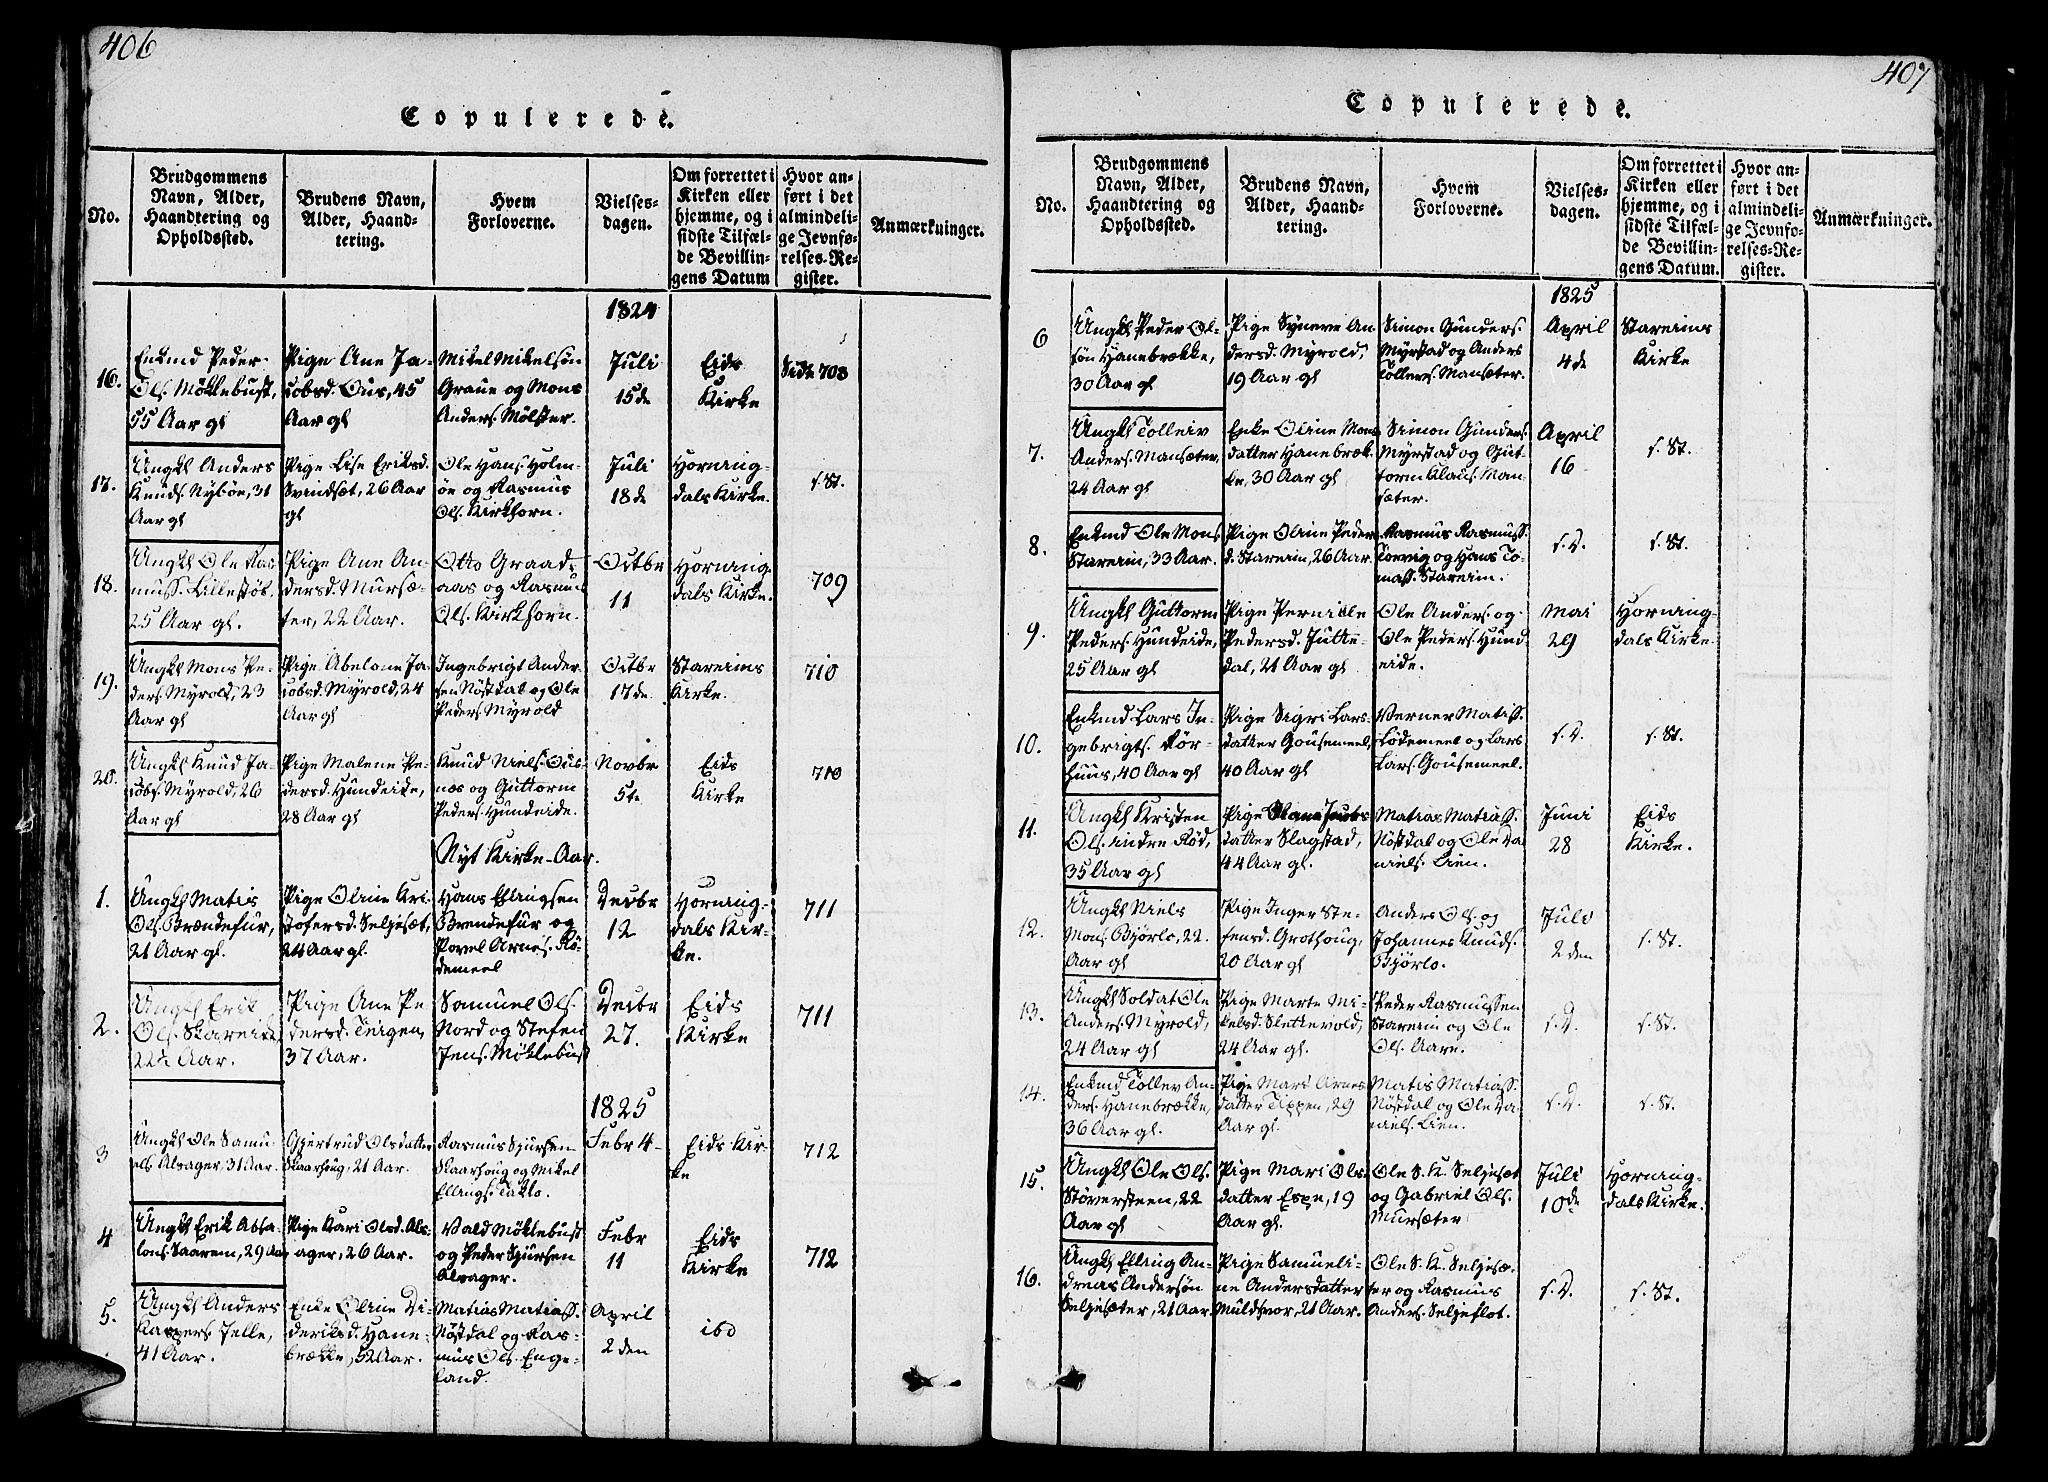 406
Copulerede.
No.
Brudgommens
Navn, Alder,
Haandtering og
Opholdssted.
Brudens Navn,
Alder, Haand-
tering.
Hvem
Forloverne.
Vielses-
dagen.
Om forrettet i
Kirken eller
hjemme, og i
sidste Tilfæl-
de Bevillin-
gens Datum
Hvor an-
ført i det
almindeli-
ge Jevnfø-
relses-Re-
gister.
Anmærkninger.
1824
16.
Enkmd Peder
Ols. Møklebust,
55 Aar gl
Pige Ane Ja-
cobsd. Ous, 45
Aar gl
Mikel Mikelsøn
Graue og Mons
Anders. Mølster.
Juli
15de
Eids
Kirke
Side 708
17.
Ungkl Anders
Knuds. Nybøe, 31
Aar gl
Pige Lise Eriksd.
Svindsæt, 26 Aar
gl
Ole Hans. Holm-
øe og Rasmus
Ols. Kirkhorn.
Juli
18de
Horning-
dals Kirke.
s. St.
18.
Ungkl Ole Ras-
muss. Lillestøl,
25 Aar gl.
Pige Ane An-
dersd. Mursæ-
ter, 22 Aar.
Otto Graad-
aas og Rasmus
Ols. Kirkhorn.
Octbr
11
Horning
dals Kirke.
709
19.
Ungkl Mons Pe-
ders. Myrold, 23
Aar gl
Pige Abelone Ja-
cobsd. Myrold, 24
Aar gl
Ingebrigt Ander-
sen Nøstdal og Ole
Peders. Myrold
Octbr
17de
Stareims
Kirke.
710
20.
Ungkl Knud Ja-
cobs. Myrold, 26
Aar gl
Pige Malene Pe-
dersd. Hundeide,
28 Aar gl
Knud Niels. Ous-
næs og Guttorm
Peders. Hundeide.
Novbr
5te
Eids
Kirke
710
Nyt Kirke-Aar.
1.
Ungkl Matis
Ols. Brændefur,
21 Aar gl.
Pige Oline Kri-
stofersd. Seljesæt,
24 Aar gl.
Hans Ellingsen
Brendefur og
Povel Arnes. Rø-
demeel
Decbr
12
Horning-
dals Kir-
ke.
711
2.
Ungkl Erik
Ols. Skareide
22½ Aar.
Pige Ane Pe
dersd. Teigen,
37 Aar.
Samuel Ols.
Nord og Stefen
Jens. Møklebust
Decbr
27.
Eids
Kirke
711
1825
3
Ungkl Ole Samu-
els. Alsager, 31 Aar.
Gjertrud Olsdatter
Skaarhoug, 21 Aar.
Rasmus Sjursen
Skaarhoug og Mikel
Ellings. Taklo.
Febr 4-
Eids Kir-
ke
712
4
Ungkl Erik Absa
lons. Saarem, 29 Aar
Pige Kari Olsd. Als-
ager, 26 Aar.
Vald Møklebust
og Peder Sjursen
Alsager.
Febr
11
Eids
Kirke
712
5.
Ungkl Anders
Kaspers. Jelle,
41 Aar.
Enke Oline Di-
deriksd. Hane-
brække, 52 Aar.
Matias Matiass.
Nøstdal og Ras-
mus Ols. Enge-
land.
April
2den
ibd
407
Copulerede.
No.
Brudgommens
Navn, Alder,
Haandtering og
Opholdssted.
Brudens Navn,
Alder, Haand-
tering.
Hvem
Forloverne.
Vielses-
dagen.
Om forrettet i
Kirken eller
hjemme, og i
sidste Tilfæl-
de Bevillin-
gens Datum.
Hvor an-
ført i det
almindeli-
ge Jevnfø-
relses-Re-
gister.
Anmærkninger.
1825
6
Ungkl Peder Ol-
søn Hanebrække,
30 Aar gl
Pige Synneve An
dersd. Myrold,
19 Aar gl
Simon Gunders.
Myrstad og Anders
Tollevs. Mansæter.
April
4de
Stareims
Kirke
7.
Ungkl Tolleiv
Anders. Mansæter,
24 Aar gl
Enke Oline Mons
datter Hanebræk-
ke, 30 Aar gl
Simon Gunders.
Myrstad og Gut-
torm Klaus. Man
sæter.
April
16
s. St.
8.
Enkmd Ole Mons
Stareim, 33 Aar.
Pige Oline Peders
d. Stareim, 26 Aar
Rasmus Rasmuss.
Torvig og Hans To-
mass. Stareim.
s. D.
s. St.
9.
Ungkl Guttorm
Peders. Hundeide,
25 Aar gl
Pige Pernille
Pedersd. Jutte-
dal, 21 Aar gl
Ole Anders. og
Ole Peders. Hund-
eide.
Mai
29
Horning-
dals Kirke.
10.
Enkmd Lars In-
gebrigts. Rør-
huus, 40 Aar gl
Pige Sigri Lars-
datter Gousemeel,
40 Aar gl
Verner Matiss.
Lødemeel og Lars
Lars. Gousemeel.
s. D.
s. St.
11.
Ungkl Kristen
Ols. Indre Rød,
35 Aar gl
Pige Olane Jacobs
datter Slagstad,
44 Aar gl.
Matias Matiass.
Nøstdal og Ole Da
niels. Lien.
Juni
28
Eids
Kirke.
12.
Ungkl Niels
Mons. Bjørlo, 22.
Aar gl
Pige Inger Ste-
fensd. Grothoug,
20 Aar gl
Anders Ols. og
Johannes Knuds.
Bjørlo.
Juli
2den
s. St.
13.
Ungkl Soldat Ole
Anders. Myrold,
24 Aar gl
Pige Marte Mi-
kelsd. Slettevold,
24 Aar gl.
Peder Rasmussen
Stareim og Ole
Ols. Aare.
s. D.
s. St.
14.
Enkmd Tollev An-
ders. Hanebrække,
36 Aar gl.
Pige Mari Arnes
datter Tippen, 29
Aar gl.
Matis Matiass.
Nøstdal og Ole Da-
niels. Lien.
s. D.
s. St.
15.
Ungkl Ole Ols.
Støversteen, 22
Aar gl
Pige Mari Ols-
datter Espe, 19
Aar gl.
Ole S. K. Seljesæt
og Gabriel Ols.
Mursæter
Juli
10de
Horning-
dals Kirke.
16.
Ungkl Elling An-
dreas Andersøn
Seljesæter, 21 Aar.
Pige Samueli-
ne Andersdatter
Muldsvor, 21 Aar.
Ole S. K. Seljesæ-
ter og Rasmus
Anders. Seljeflot.
s. D.
s. St.